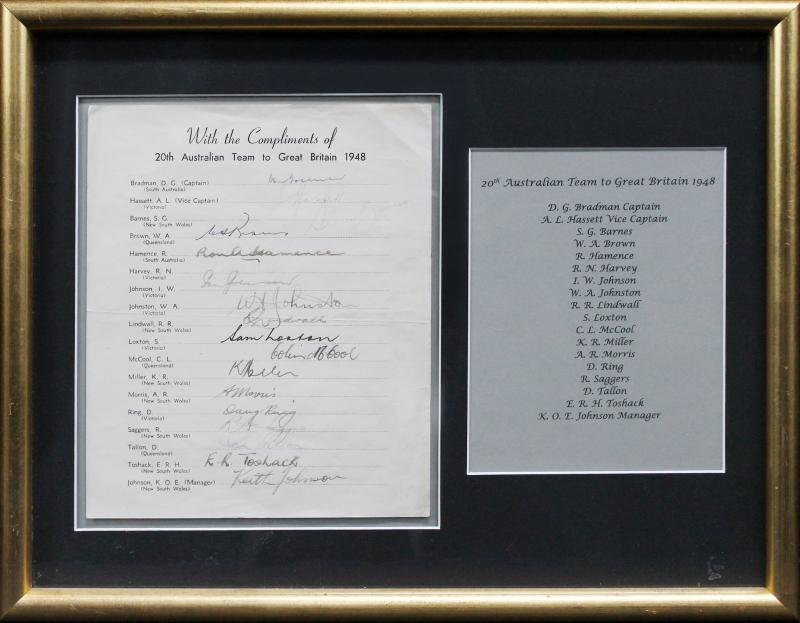 With the Compliments of
20th Australian Team to Great Britain 1948
Bradman, D. G. (Captain)
(South Australia)
Hassett, A. L. (Vice Captain)
(Victoria)
Barnes, S. G.
(New South Wales)
Brown, W. A.
(Queensland)
Hamence, R.
(South Australia)
Ron A Hamence
Harvey, R. N.
(Victoria)
Johnson, I. W.
(Victoria)
Johnston, W. A.
(Victoria)
W A Johnston
Lindwall, R. R.
(New South Wales)
Loxton, S.
(Victoria)
Sam Loxton
McCool, C. L.
(Queensland)
Colin McCool
Miller, K. R.
(New South Wales)
K Miller
Morris, A. R.
(New South Wales)
A Morris
Ring, D.
(Victoria)
Doug Ring
Saggers, R.
(New South Wales)
Tallon, D.
(Queensland)
Don Tallon
Toshack, E. R. H.
(New South Wales)
E. R. Toshack
Johnson, K. O. E. (Manager)
(New South Wales)
Keith Johnson
20th Australian Team to Great Britain 1948
D. G. Bradman Captain
A. L. Hassett Vice Captain
S. G. Barnes
W. A. Brown
R. Hamence
R. N. Harvey
I. W. Johnson
W. A. Johnston
R. R. Lindwall
S. Loxton
C. L. McCool
K. R. Miller
A. R. Morris
D. Ring
R. Saggers
D. Tallon
E. R. H. Toshack
K. O. E. Johnson Manager